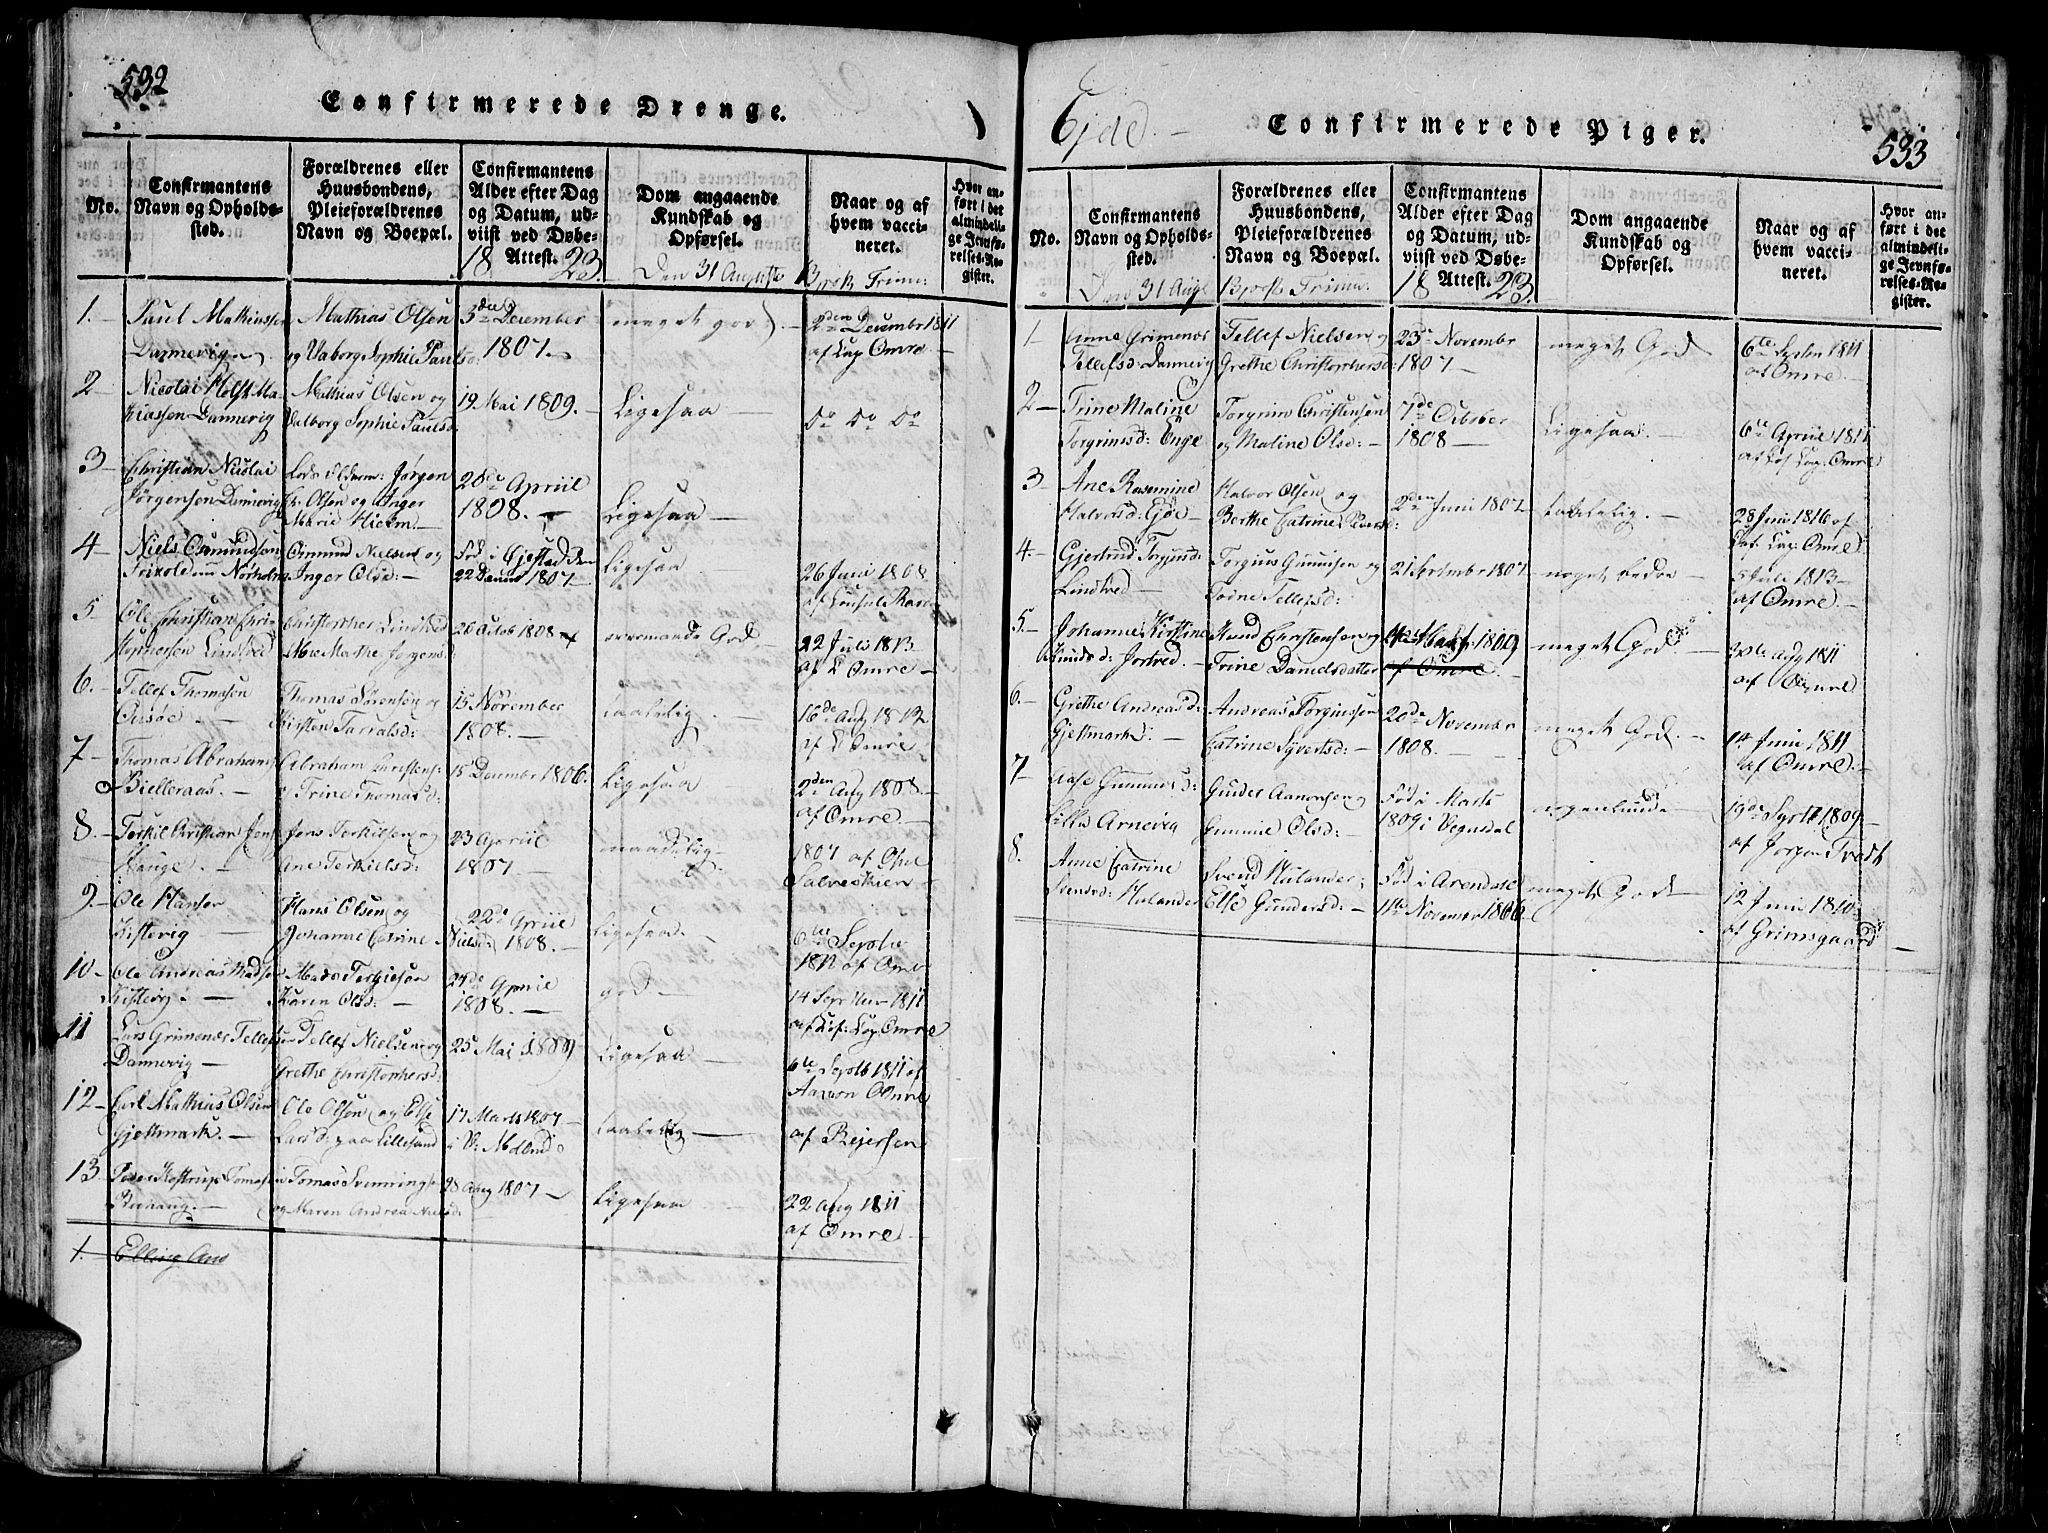 532
Confirmerede Drenge.
No.
Confirmantens
Navn og Opholds-
sted.
Forældrenes eller
Huusbondens,
Pleieforældrenes
Navn og Boepæl.
Confirmantens
Alder efter Dag
og Datum, ud-
viist ved Døbe-
Attest.
18 23.
Dom angaaende
Kundskab og
Opførsel.
Naar og af
hvem vacci-
neret.
Hvor an-
ført i det
almindeli-
ge Jevnfø-
relses-Re-
gister.
Den 31 August
1. Paul Mathiassen
Dannevig
Mathias Olsen
og Valborg Sophie Paulsd:
3die December
1807.
meget god
2den Decembr 1811
af Cap Omre
2 Nicolai Holst Ma-
thiassen Dannevig
Mathias Olsen og
Valborg Sophie Paulsd.
19 Mai 1809.
Ligesaa
Do Do Do
3 Christian Nicolai
Jørgensen Dannevig
Lods Oldrm: Jørgen
Chr: Olsen og Inger
Marie Hielm
20de Apriil
1808.
Ligesaa
4 Niels Osmundsen
Osmund Nielsen og
Inger Olsd:
Fød i Gjestad den
22 Januar 1807
Ligesaa
26 Juni 1808
5 Ole Christian Chri-
stophersen Lindtved
Christopher Lindtved
Marthe Jørgensd
20 Octob 1808
God
22 Juli 1813
af L Omre
6. Tellef Thomasen
Thomas Sørensen og
Kirsten Tarralsd:
15 November
1808.
taalelig
16de Aug 1812
af L Omre
7 Thomas Abrahams
Bielleraas.
Abraham Christens:
og Trine Thomasd:
15 Decembr 1806.
Ligesaa
2den Aug 1808.
af Omre
8. Terkil Christian Jens
Hauge.
Jens Terkilsen og
Ane Terkielsd:
23 Apriil
1807
maadelig
1807 af
9 Ole Hansen
Kistevig
Hans Olsen og
Johanne Catrine
Nielsd:
22de Apriil
1808.
Ligesaa
6te Septbr
1811 af Omre
10 Ole Andreas Madsen
Kistevig
Mads Tergiesen
Karen Olsd:
24de Apriil
1808.
god
14 September 1811
af Cap: Omre
11 Lars Grimenæs Tellefsen
Dannevig
Tellef Nielsen og
Grethe Christophersd:
25 Mai 1809
Ligesaa
6te Septb 1811 af
Aanon Omre
12 Carl Mathias Olsen
Gjettmark.
Ole Olsen og Else
Larsd: paa Lillesand
17 Marts 1807
i V: Moland
taalelig
af Reiersen
13 Peder Kastrup Tomasen
Tomas Svenningsen
og Maren Andrea Nielsd.
28 Aug 1807
Ligesaa
22 Aug 1811
af Omre
1. Elling And
Eide.
Confirmerede Piger.
533
No.
Confirmantens
Navn og Opholds-
sted.
Forældrenes eller
Huusbondens,
Pleieforældrenes
Navn og Boepæl.
Confirmantens
Alder efter Dag
og Datum, ud-
viist ved Døbe-
Attest.
18 23.
Dom angaaende
Kundskab og
Opførsel.
Naar og af
hvem vacci-
neret.
Hvor an-
ført i det
almindeli-
ge Jevnfø-
relses-Re-
gister.
Den 31 Aug
1 Anne Grimenæs
Tellefsd: Dannevig
Tellef Nielsen og
Grethe Christophersd:
23de Novembr
1807
meget God
6te Septbr 1811
af Omre.
2 Trine Maline
Torgrimsd: Enge
Torgrim Christensen
og Maline Olsd:
7de October
1808
Ligesaa.
6te Apriil 1811
af Cap: Omre
3 Ane Rasemine
Halvorsd: Gjøe
Halvor Olsen og
Berthe Catrine
2den Juni 1807
taalelig.
28 Juni 1816 af
Cap: Omre
4 Gjertrud Torgiusd:
Lindtved
Torgius Gunnisen og
Todne Tellefsd:
21 September 1807
noget bedre
5 Juli 1813
af Omre
5. Johanne Kirstine
Amundsd: Jortved.
Amund Christensen og
Trine Danielsdatter
1809
af Omre
meget God.
30te Aug 1811
af Omre
6. Grethe Andreasd:
Gjettmark.
Andreas Torgiussen
Catrine Syvertsd:
20de November
1808.
meget God.
14 Juni 1811
af Omre.
7 Aase Gunnersd:
Lille Arnevig
Gunder Aanonsen og
Gunnie Olsd:
Fød i Marts
1809 i Vegusdal
nogenlunde
19de Septb 1809
af Jørgen Tvedt
8. Anne Catrine
Svendsd: Hulander
Svend Hulander
Else Gundersd:
Fød i Arendal
11te November 1806
meget God
12 Juni 1810
af Grimsgaard